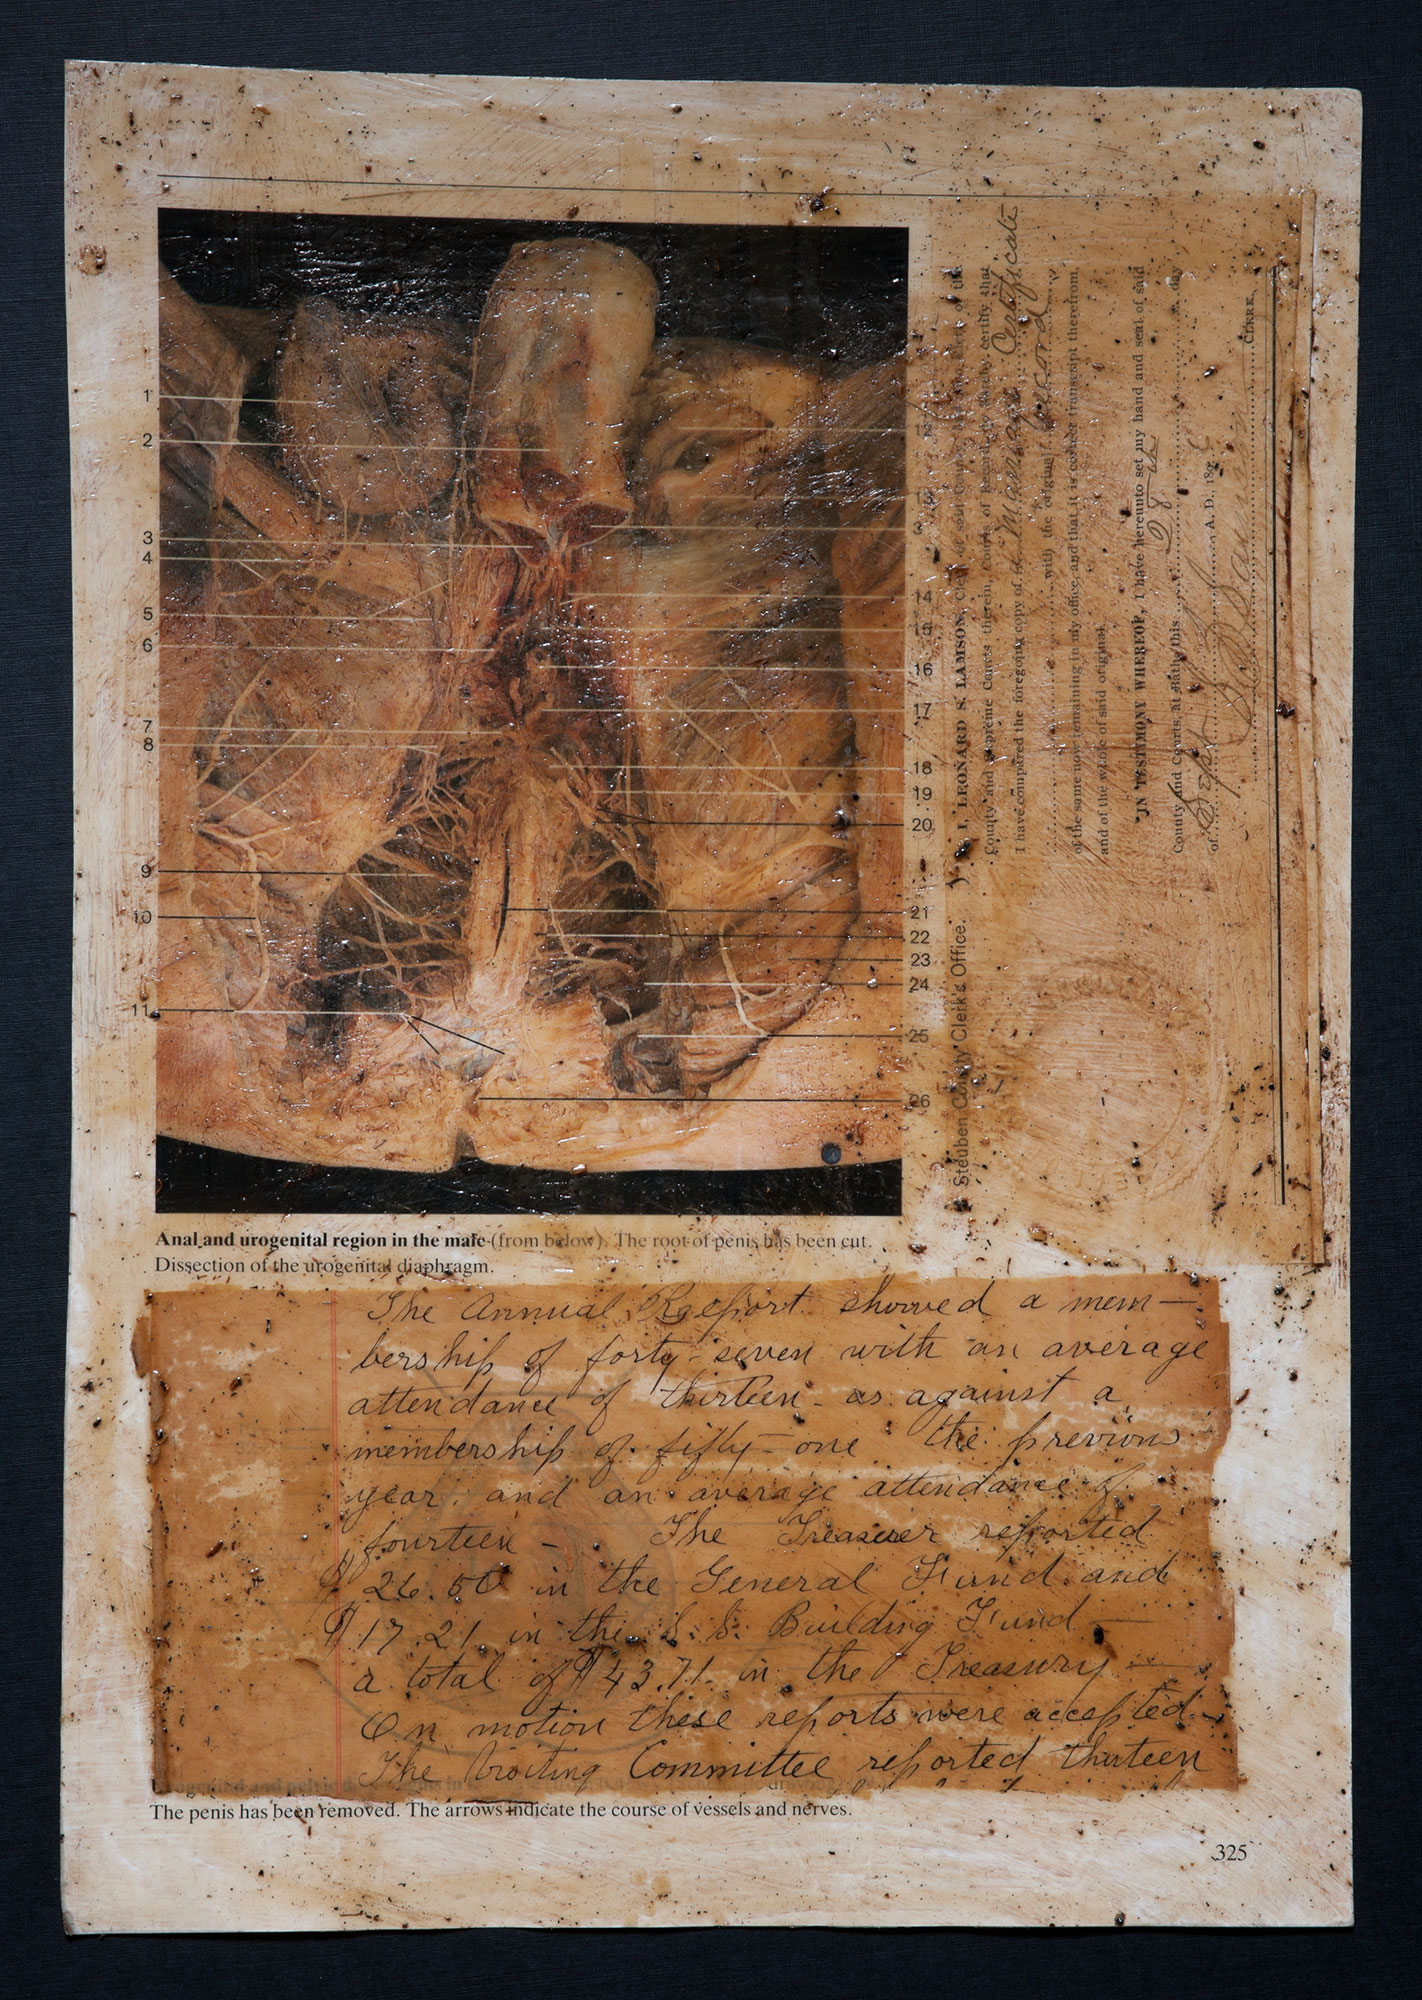 1
2
3
4
5
6
7
8
9
10
11
14
15
16
17
18
19
20
21
22
23
24
25
26
Steuben County Clerk's Office.
I, LEONARD S. LAMSON, Clerk of said County, Clerk of the
County and Supreme Courts therein, Courts of Record, do hereby certify that
I have compared the foregoing copy of Marriage Certificate
with the original Record
of the same now remaining in my office, and that it is correct transcript therefrom,
and of the whole of said original.
IN TESTIMONY WHEREOF, I have hereunto set my hand and seal of said
County and Courts, at Bath, this 28th day
of Sept A. D., 189
CLERK.
Anal and urogenital region in the male (from below). The root of penis has been cut.
Dissection of the urogenital diaphragm.
The Annual Report showed a mem-
bership of forty-seven with an average
attendance of thirteen - as against a
membership of fifty-one the previous
year, and an average attendance of
fourteen - The Treasurer reported
$26.50 in the General Fund and
$17.21 in the S. S. Building Fund -
a total of $43.71 in the Treasury -
On motion these reports were accepted -
The Visiting Committee reported thirteen
The penis has been removed. The arrows indicate the course of vessels and nerves.
325